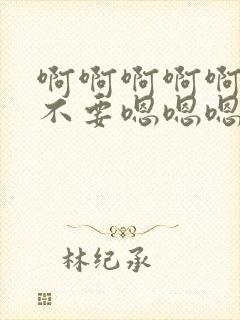 啊啊啊啊啊
不要嗯嗯嗯
林纪承